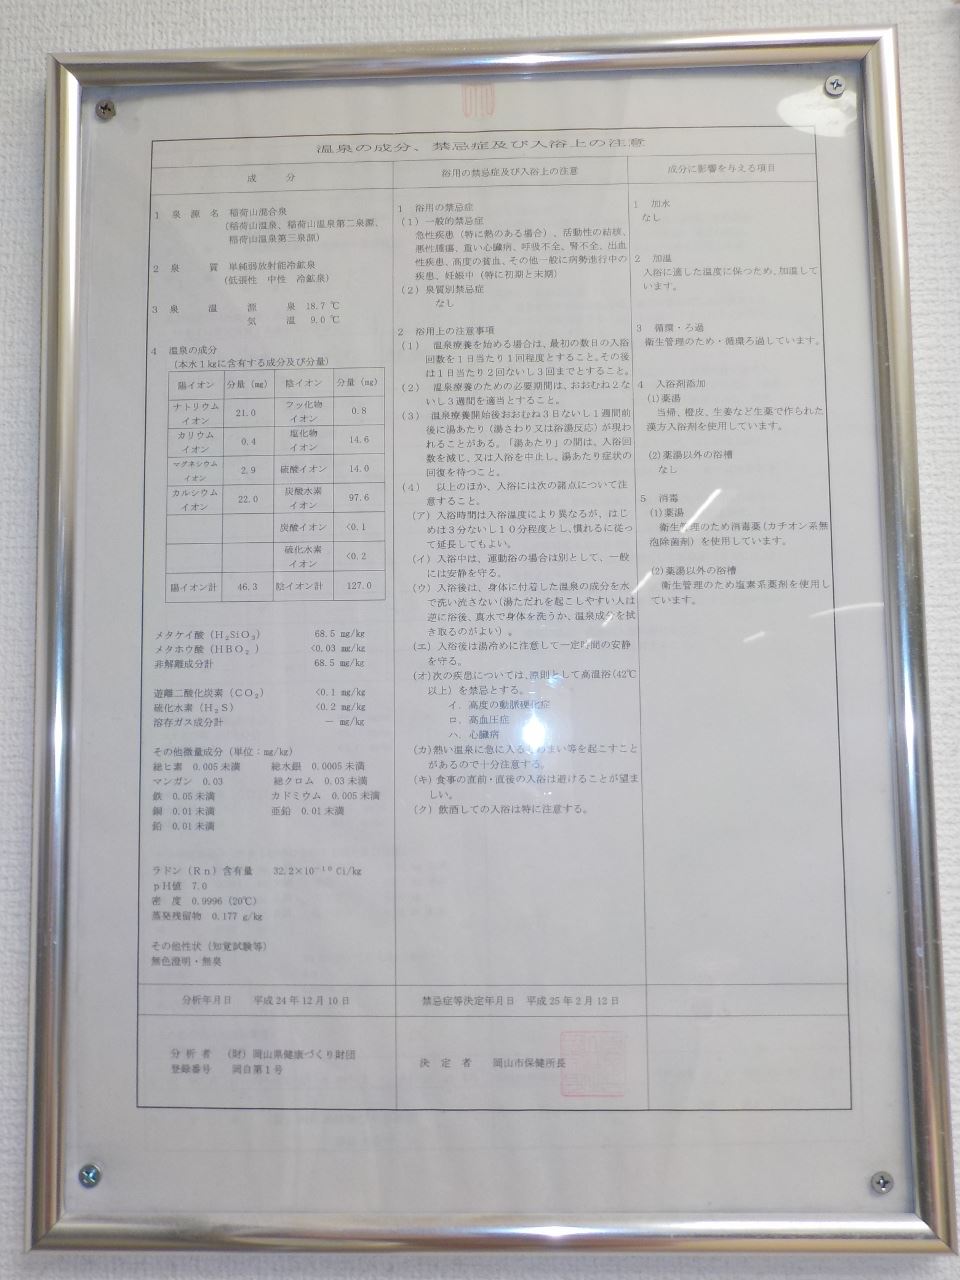 温泉の成分、禁忌症及び入浴上の注意
成 分
1 泉 源 名 稲荷山混合泉
(稲荷山温泉、稲荷山温泉第二泉源、
稲荷山温泉第三泉源)
2 泉 質 単純弱放射能冷鉱泉
(低張性 中性 冷鉱泉)
3 泉 温 源 泉 18.7 ℃
気 温 9.0 ℃
4 温泉の成分
(本水1kgに含有する成分及び分量)
陽イオン 分量 (mg) 陰イオン 分量 (mg)
ナトリウムイオン 21.0 フッ化物イオン 0.8
カリウムイオン 0.4 塩化物イオン 14.6
マグネシウムイオン 2.9 硫酸イオン 14.0
カルシウムイオン 22.0 炭酸水素イオン 97.6
炭酸イオン <0.1
硫化水素イオン <0.2
陽イオン計 46.3 陰イオン計 127.0
メタケイ酸 (H₂SiO₃) 68.5 mg/kg
メタホウ酸 (HBO₂) <0.03 mg/kg
非解離成分計 68.5 mg/kg
遊離二酸化炭素 (CO₂) <0.1 mg/kg
硫化水素 (H₂S) <0.2 mg/kg
溶存ガス成分計 — mg/kg
その他微量成分 (単位:mg/kg)
総ヒ素 0.005未満 総水銀 0.0005未満
マンガン 0.03 総クロム 0.03未満
鉄 0.05未満 カドミウム 0.005未満
銅 0.01未満 亜鉛 0.01未満
鉛 0.01未満
ラドン (Rn) 含有量 32.2×10⁻¹⁰ Ci/kg
pH値 7.0
密 度 0.9996 (20℃)
蒸発残留物 0.177 g/kg
その他性状 (知覚試験等)
無色澄明・無臭
分析年月日 平成24年12月10日
分 析 者 (財) 岡山県健康づくり財団
登録番号 岡自第1号
浴用の禁忌症及び入浴上の注意
1 浴用の禁忌症
(1) 一般的禁忌症
急性疾患 (特に熱のある場合) 、活動性の結核、
悪性腫瘍、重い心臓病、呼吸不全、腎不全、出血
性疾患、高度の貧血、その他一般に病勢進行中の
疾患、妊娠中 (特に初期と末期)
(2) 泉質別禁忌症
なし
2 浴用上の注意事項
(1) 温泉療養を始める場合は、最初の数日の入浴
回数を1日当たり1回程度とすること。その後
は1日当たり2回ないし3回までとすること。
(2) 温泉療養のための必要期間は、おおむね2な
いし3週間を適当とすること。
(3) 温泉療養開始後おおむね3日ないし1週間前
後に湯あたり (湯さわり又は浴湯反応) が現わ
れることがある。「湯あたり」の間は、入浴回
数を減じ、又は入浴を中止し、湯あたり症状の
回復を待つこと。
(4) 以上のほか、入浴には次の諸点について注
意すること。
(ア) 入浴時間は入浴温度により異なるが、はじ
めは3分ないし10分程度とし、慣れるに従っ
て延長してもよい。
(イ) 入浴中は、運動浴の場合は別として、一般
には安静を守る。
(ウ) 入浴後は、身体に付着した温泉の成分を水
で洗い流さない(湯ただれを起こしやすい人は
逆に浴後、真水で身体を洗うか、温泉成分を拭
き取るのがよい) 。
(エ) 入浴後は湯冷めに注意して一定時間の安静
を守る。
(オ) 次の疾患については、原則として高温浴(42℃
以上) を禁忌とする。
イ. 高度の動脈硬化症
ロ. 高血圧症
ハ. 心臓病
(カ) 熱い温泉に急に入るとめまい等を起こすこと
があるので十分注意する。
(キ) 食事の直前・直後の入浴は避けることが望ま
しい。
(ク) 飲酒しての入浴は特に注意する。
禁忌症等決定年月日 平成25年2月12日
決 定 者 岡山市保健所長
成分に影響を与える項目
1 加水
なし
2 加温
入浴に適した温度に保つため、加温して
います。
3 循環・ろ過
衛生管理のため・循環ろ過しています。
4 入浴剤添加
(1)薬湯
当帰、橙皮、生姜など生薬で作られた
漢方入浴剤を使用しています。
(2)薬湯以外の浴槽
なし
5 消毒
(1)薬湯
衛生管理のため消毒薬(カチオン系無
泡除菌剤) を使用しています。
(2)薬湯以外の浴槽
衛生管理のため塩素系薬剤を使用し
ています。